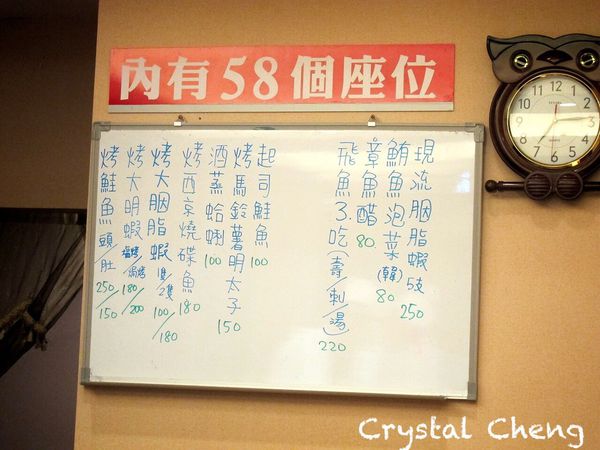 內有58個座位
現流胭脂蝦5支 250
鮪魚泡菜(韓) 80
章魚醋 80
飛魚3吃(壽/刺/湯) 220
起司鮭魚 100
烤馬鈴薯明太子 150
酒蒸蛤蜊 100
烤西京燒碟魚 180
烤大胭脂蝦 1隻/2隻 100/180
烤大明蝦 鹽烤/焗烤 180/200
烤鮭魚頭/肚 250/150
Crystal Cheng